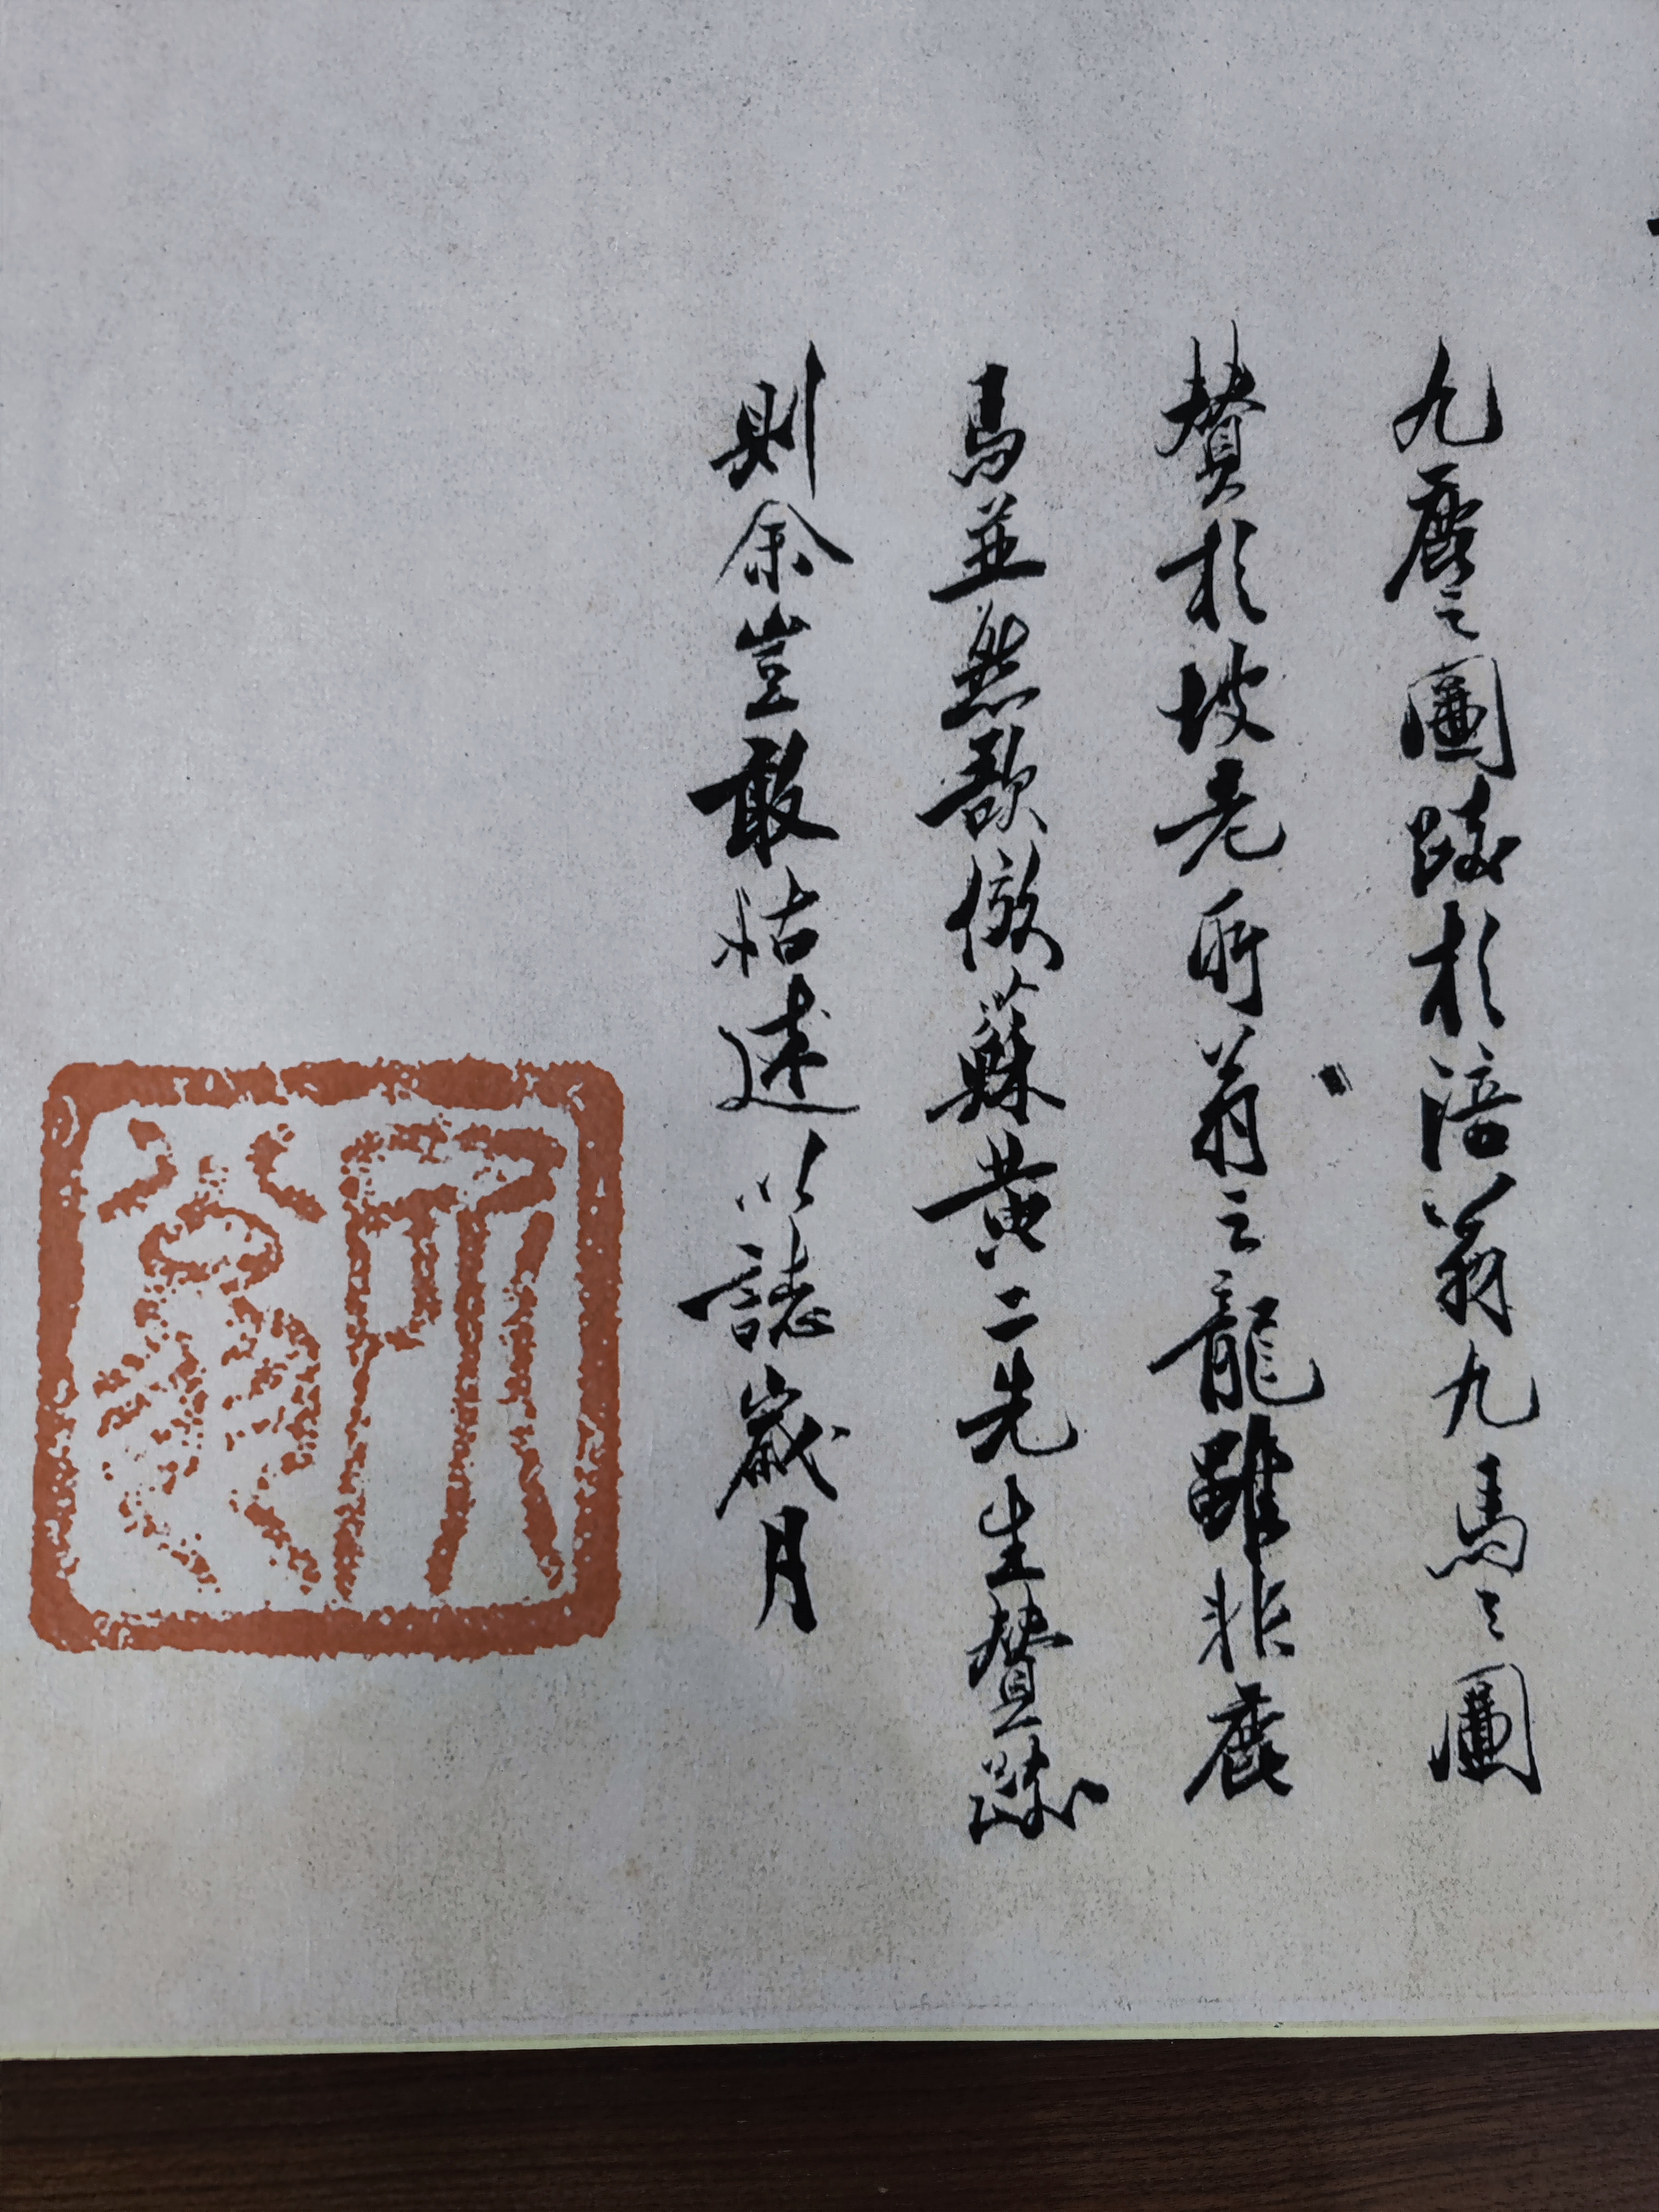 九鹿之圖跋於涪翁九馬之圖
贊於坡老所翁之龍雖非鹿
馬並然欲倣蘇黃二先生贊跋
則余豈敢怙述以誌歲月
所翁